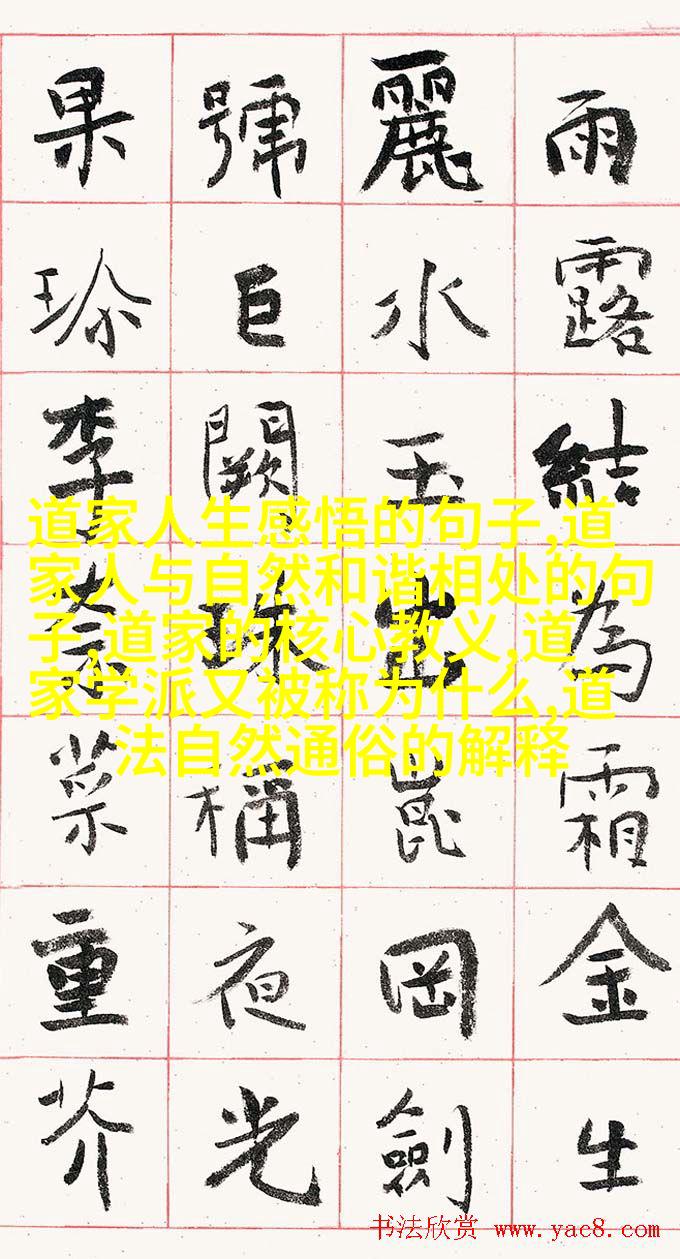 雨露結為霜金生
麗水玉出崑岡劍
號巨闕珠稱夜光
果珍李柰菜重芥
道家人生感悟的句子,道
家人与自然和谐相处的句
子,道家的核心教义,道
家学派又被称为什么,道
法自然通俗的解释
书法欣赏 www.yac8.com